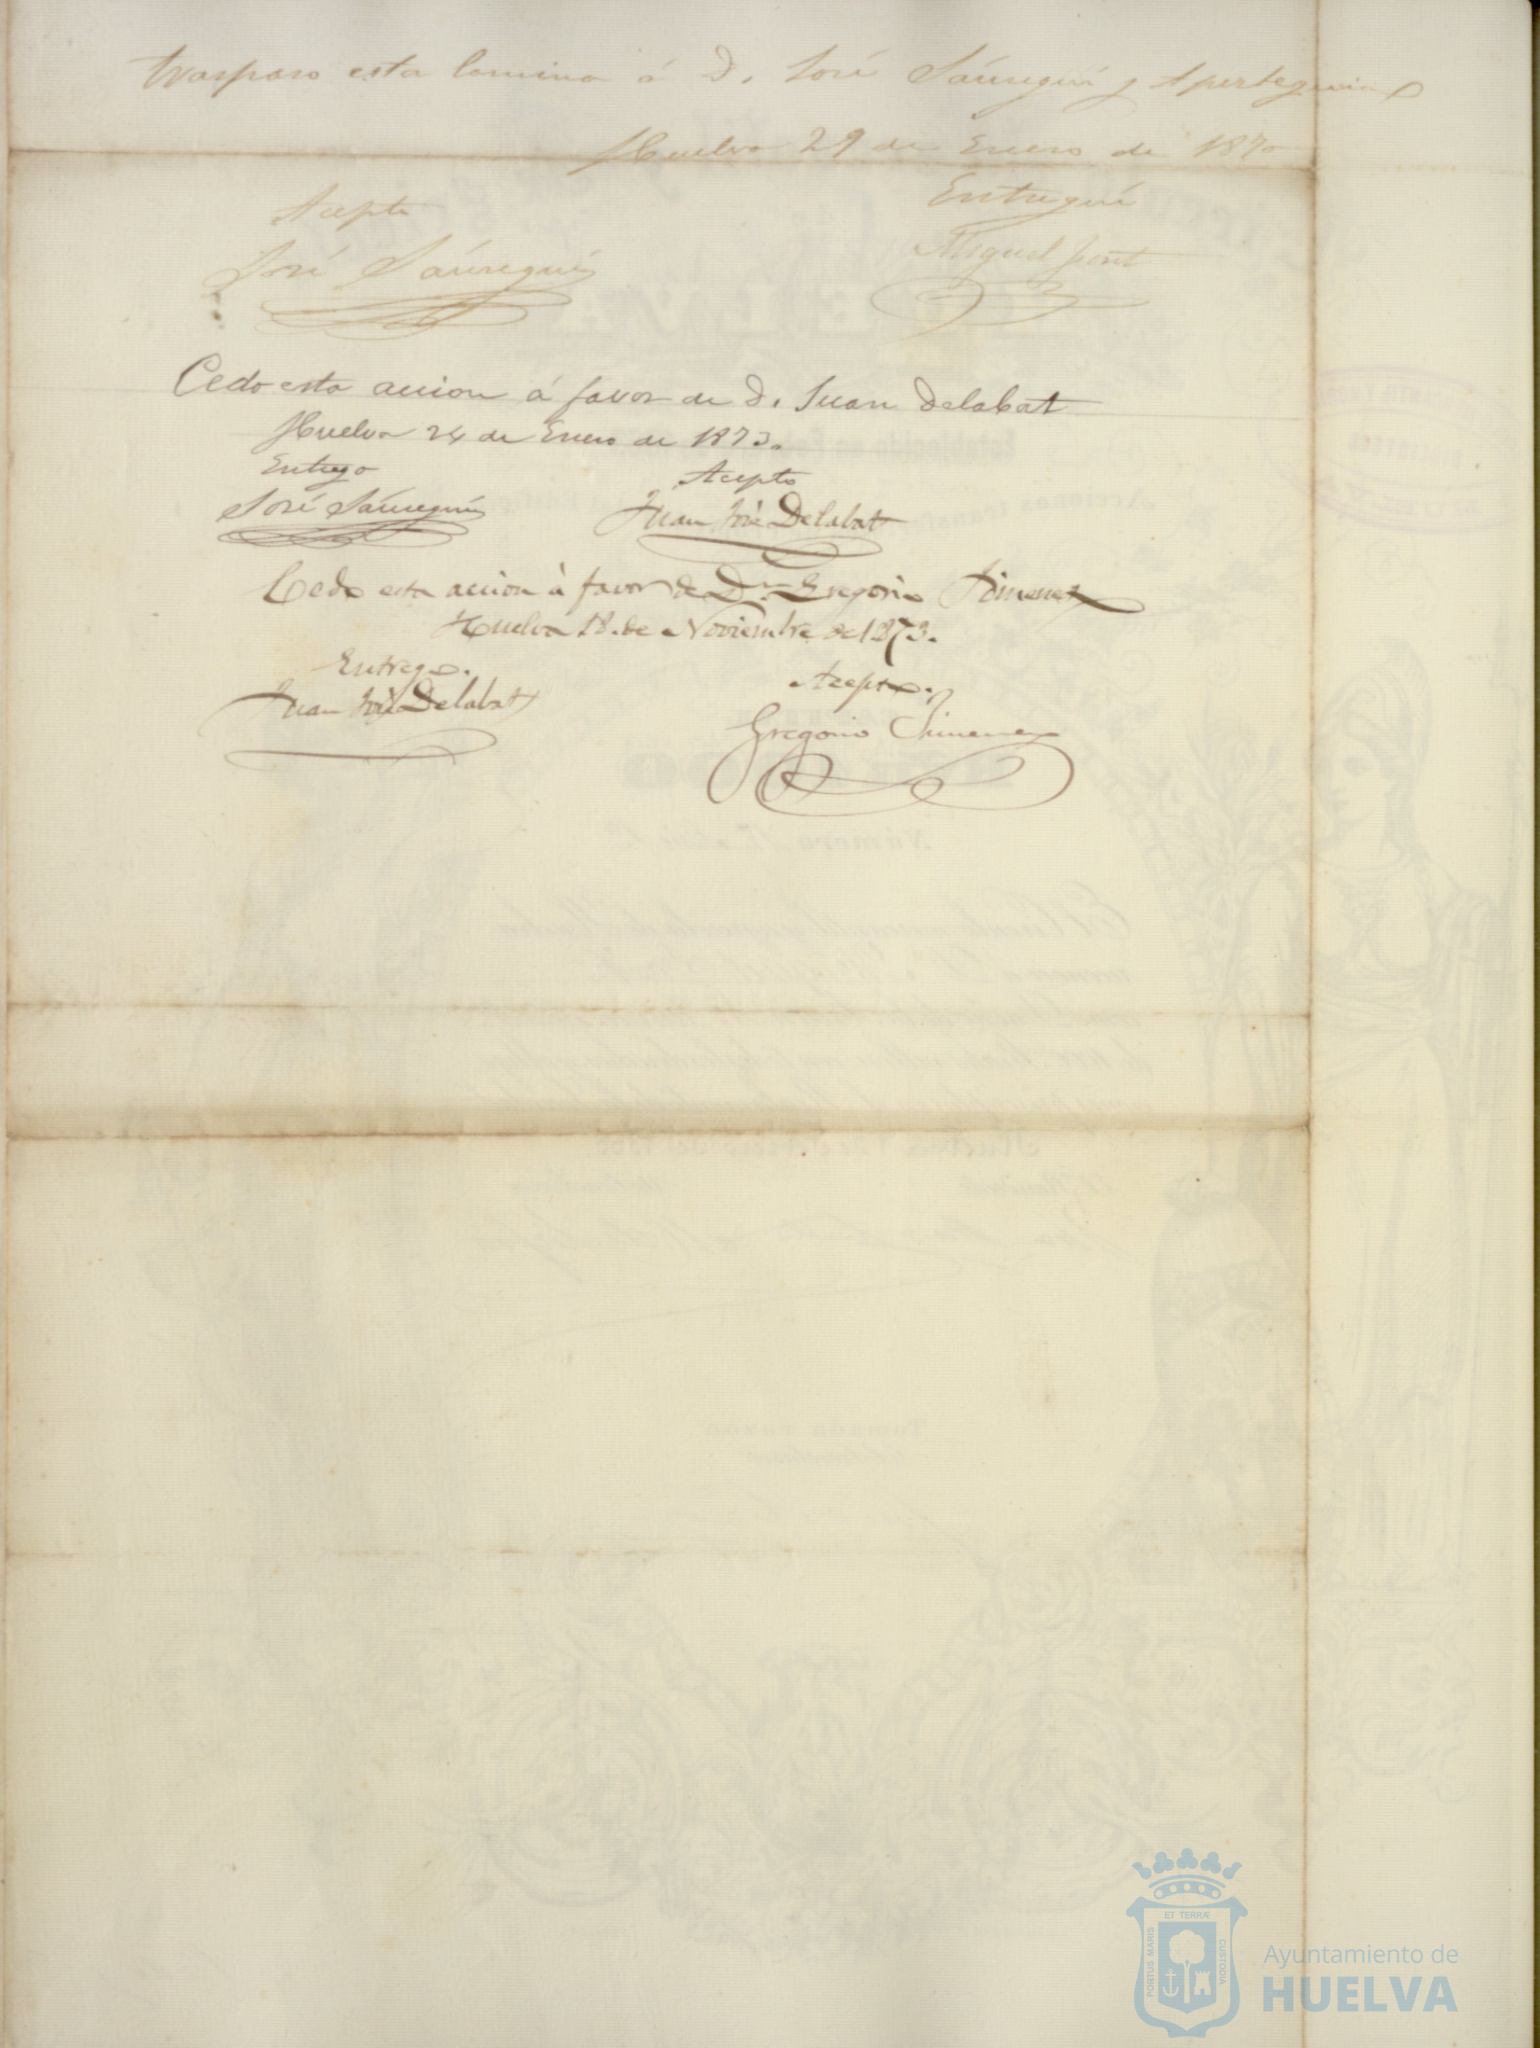 traspaso esta lamina á D. José Sáuregui y Aperteguia
Huelva 29 de Enero de 1870
Acepto
Entregué
José Sáuregui
Miguel Font
Cedo esta accion á favor de D. Juan Delabat
Huelva 24 de Enero de 1873.
Entrego
Acepto
José Sáuregui
Juan José Delabat
Cedo esta accion á favor de Dn. Gregorio Jimenez
Huelva 18. de Noviembre de 1873.
Entrego.
Acepto.
Juan José Delabat
Gregorio Jimenez
ET TERRÆ
PORTUS MARIS
CUSTODIA
Ayuntamiento de
HUELVA